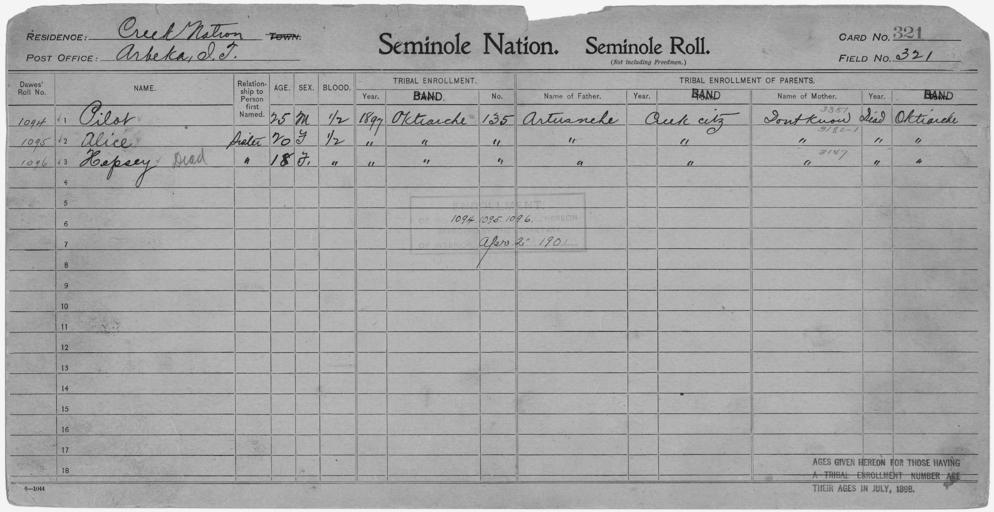 RESIDENCE: Creek Nation TOWN.
POST OFFICE: Arbeka, I.T.
Seminole Nation. Seminole Roll.
(Not including Freedmen.)
CARD NO. 321
FIELD NO. 321
Dawes' Roll No. NAME. Relationship to Person first Named. AGE. SEX. BLOOD. TRIBAL ENROLLMENT. TRIBAL ENROLLMENT OF PARENTS.
Year. BAND. No. Name of Father. Year. BAND Name of Mother. Year. BAND
3351
1094 1 Pilot 25 M 1/2 1897 Oktiarche 135 Artusanche Creek citz Dont Know Dead Oktiarche
1095 2 Alice Sister 20 F 1/2 " " " " " " " "
1096 3 Hepsey Dead " 18 F. " " " " " " " " "
4
5
ENROLLMENT
6
1094 1095 1096 HEREON
7
Apr 2 1901
8
9
10
11
12
13
14
15
16
17
18
AGES GIVEN HEREON FOR THOSE HAVING
A TRIBAL ENROLLMENT NUMBER ARE
THEIR AGES IN JULY, 1898.
6—1044